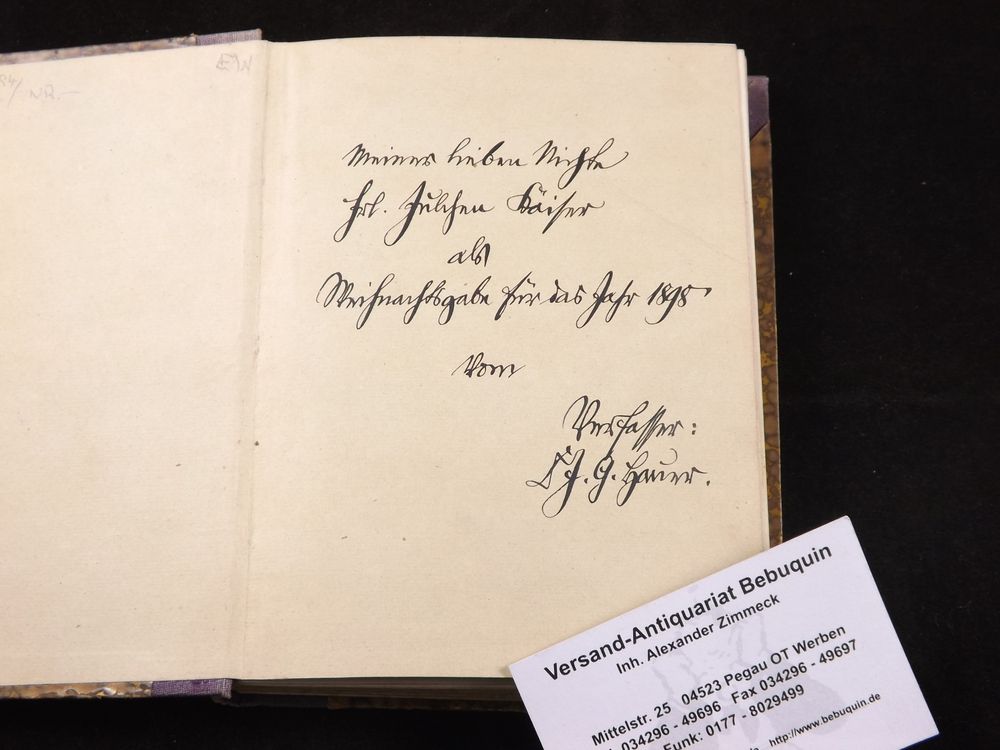 Meiner lieben Nichte
Frl. Julchen Kaiser
als
Weihnachtsgabe für das Jahr 1898
vom
Verfasser:
J. G. Hauer.
Versand-Antiquariat Bebuquin
Inh. Alexander Zimmeck
Mittelstr. 25 04523 Pegau OT Werben
034296 - 49696 Fax 034296 - 49697
Funk: 0177 - 8029499
http://www.bebuquin.de